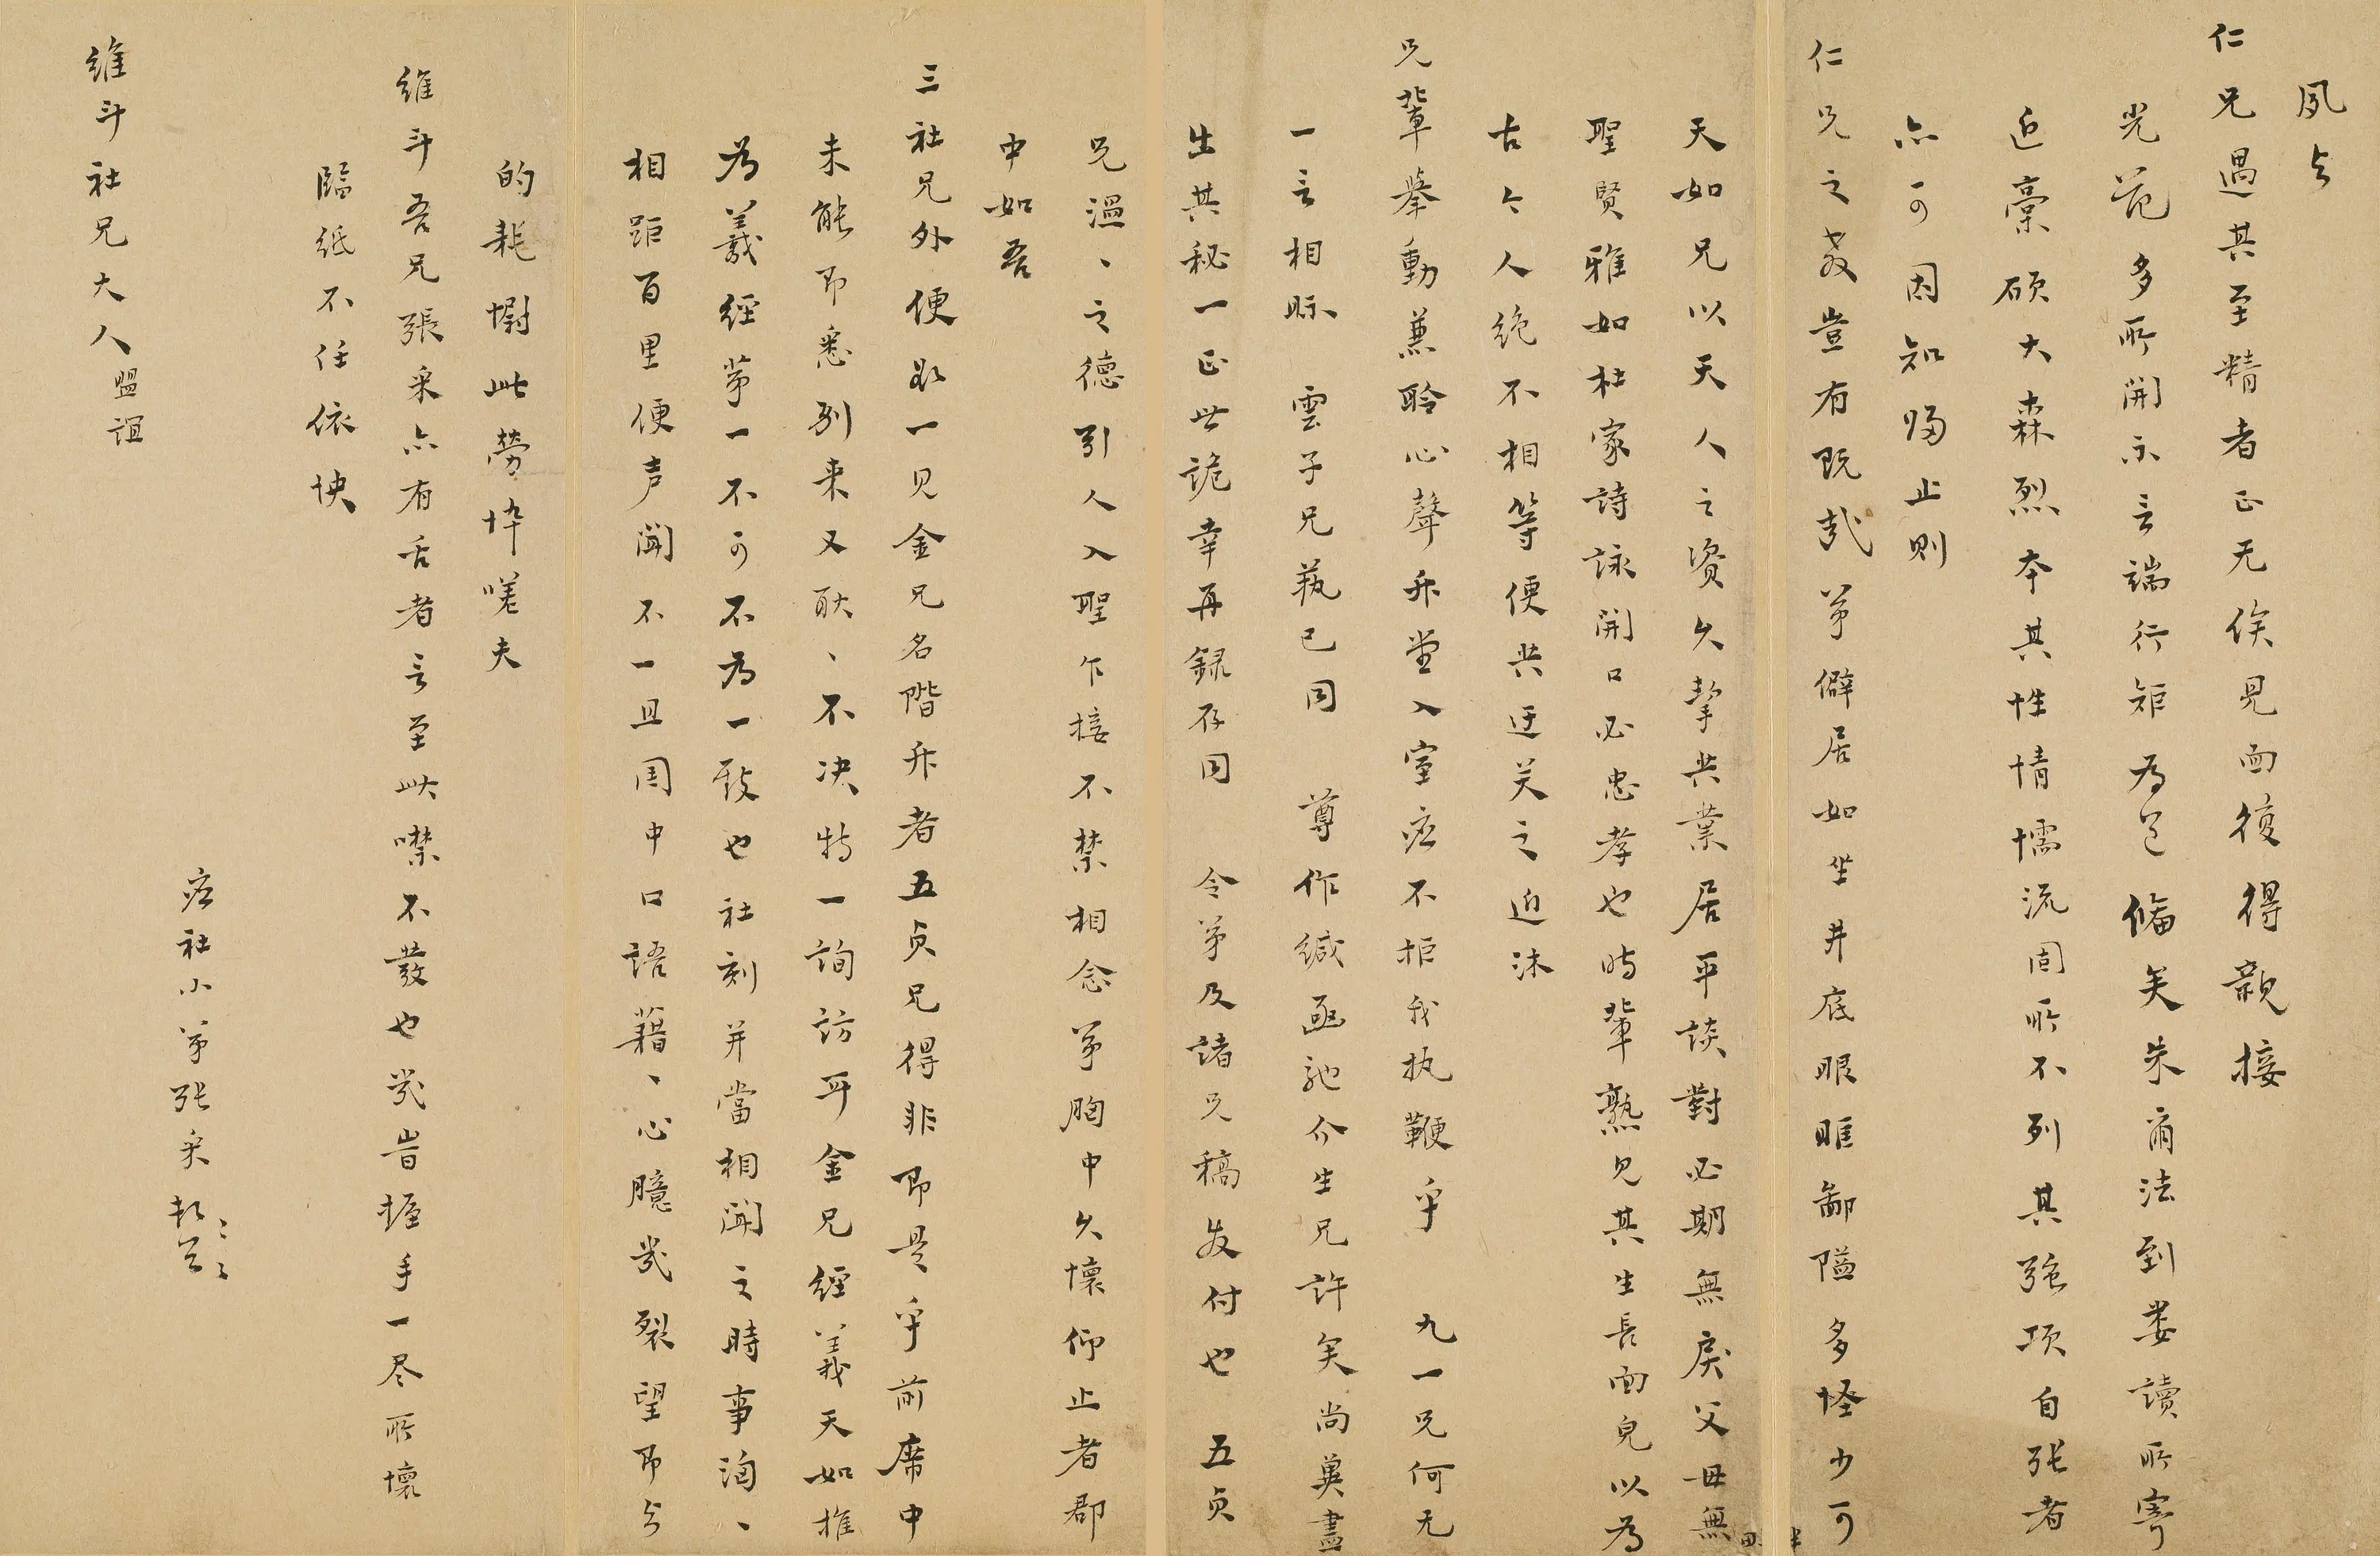 夙与
仁兄遇其至精者正无俟見面後得親接
光范多所開示言端行矩為已脩矣朱甭法到娄讀所寄
近稾硕大森烈本其性情懦流固所不列其强项自张者
亦可因知归止则
仁兄之教豈有既哉弟僻居如坐井底眼睢鄙隘多怪少可
天如兄以天人之资久挈共業居平談對必期無戾父母無
聖賢雅如杜家詩詠開口必忠孝也时輩熟見其生長面皃以为
古今人绝不相等便共迂关之迫沐
兄輩舉動兼聆心聲升堂入室应不拒我执鞭乎 九一兄何无
一言相眎 雲子兄执已同 尊作緘函驰介生兄许矣尚冀盡
出其秘一正世诡幸再録存同 令弟及諸兄稿发付也 五贞
兄温、之德引人入聖乍接不禁相念弟胸中久懷仰止者郡
中如吾
三社兄外便
一见金兄名階升者五贞兄得非即是乎前席中
未能即悉别来又耿、不决特一詢訪耳金兄經義天如推
为羲經弟一不可不为一致也社刻并當相聞之時事洶、
相距百里便声聞不一且周中口語藉、心臆幾裂望即与
的耗慰此勞忰嗟夫
維斗吾兄張采亦有舌者言至此噤不發也幾皆握手一尽所懷
臨纸不任依怏
应社小弟张采頓首
維斗社兄大人盟誼